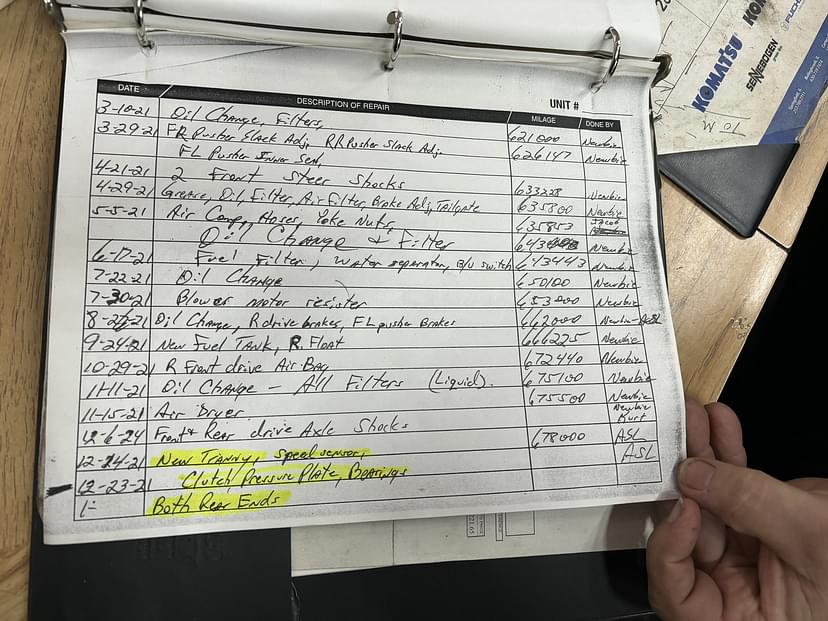 KOMATSU
SENNEBOGEN
FUCHS
DATE DESCRIPTION OF REPAIR UNIT # MILAGE DONE BY
3-10-21 Oil Change, Filters, 621000 Newbie
3-29-21 FR Pusher Slack Adj, RR Pusher Slack Adj. 626147 Newbie
FL Pusher Inner Seal,
4-21-21 2 Front Steer Shocks 633228 Newbie
4-29-21 Grease, Oil, Filter, Air Filter, Brake Adj, Tailgate 635800 Newbie
5-5-21 Air Comp, Hoses, Yoke Nuts, 635853 Jacob
Oil Change & Filter Newbie
6-17-21 Fuel Filter, Water separator, B/U switch 643443 Newbie
7-22-21 Oil Change 650100 Newbie
7-30-21 Blower motor resister 653000 Newbie
Oil Change, R drive brakes, FL pusher Brakes 662000 Newbie
9-24-21 New Fuel Tank, R. Float 666225 Newbie
10-29-21 R Front drive Air Bag 672440 Newbie
11-11-21 Oil Change - All Filters (Liquid). 675100 Newbie
11-15-21 Air Dryer 675500 Newbie
Newbie
Kurt
12-6-21 Front & Rear drive Axle Shocks 678000 ASL
12-24-21 New Tranny, speed sensor, ASL
12-23-21 Clutch, Pressure Plate, Bearings
1- Both Rear Ends